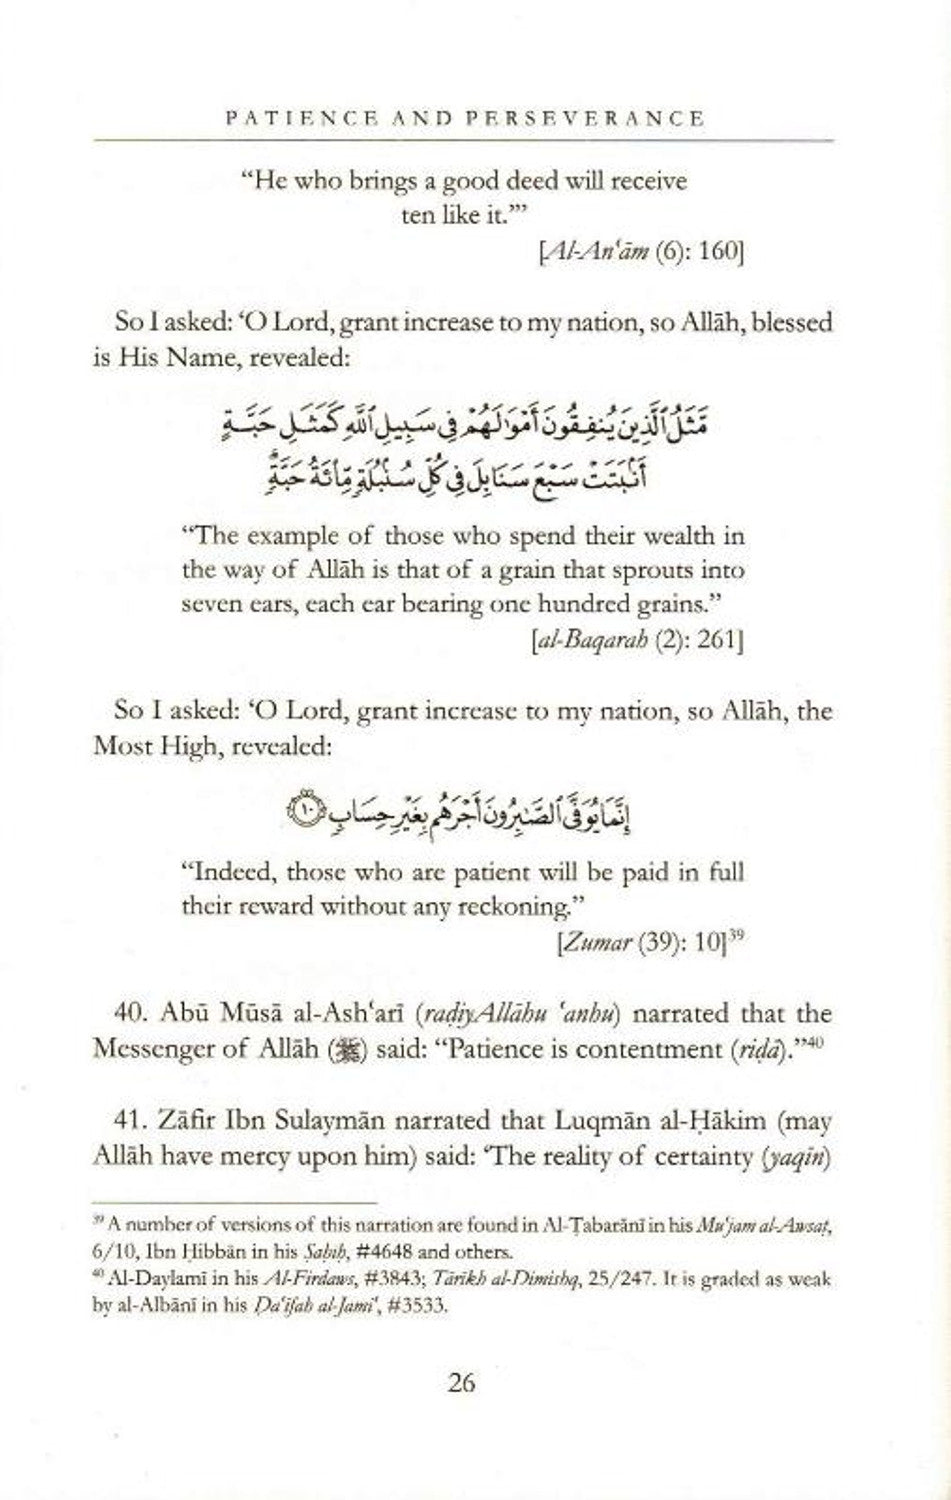 PATIENCE AND PERSEVERANCE
“He who brings a good deed will receive
ten like it.”’
[Al-An‘ām (6): 160]
So I asked: ‘O Lord, grant increase to my nation, so Allāh, blessed
is His Name, revealed:
مَّثَلُ ٱلَّذِينَ يُنفِقُونَ أَمْوَٰلَهُمْ فِى سَبِيلِ ٱللَّهِ كَمَثَلِ حَبَّةٍ
أَنۢبَتَتْ سَبْعَ سَنَابِلَ فِى كُلِّ سُنۢبُلَةٍ مِّا۟ئَةُ حَبَّةٍ ۗ
“The example of those who spend their wealth in
the way of Allāh is that of a grain that sprouts into
seven ears, each ear bearing one hundred grains.”
[al-Baqarah (2): 261]
So I asked: ‘O Lord, grant increase to my nation, so Allāh, the
Most High, revealed:
إِنَّمَا يُوَفَّى ٱلصَّٰبِرُونَ أَجْرَهُم بِغَيْرِ حِسَابٍ ١٠
“Indeed, those who are patient will be paid in full
their reward without any reckoning.”
[Zumar (39): 10]³⁹
40. Abū Mūsā al-Ash‘arī (raḍiyAllāhu ‘anhu) narrated that the
Messenger of Allāh (ﷺ) said: “Patience is contentment (riḍā).”⁴⁰
41. Zāfir Ibn Sulaymān narrated that Luqmān al-Ḥākim (may
Allāh have mercy upon him) said: ‘The reality of certainty (yaqīn)
³⁹ A number of versions of this narration are found in Al-Ṭabarānī in his Mu‘jam al-Awsaṭ,
6/10, Ibn Ḥibbān in his Ṣaḥīḥ, #4648 and others.
⁴⁰ Al-Daylamī in his Al-Firdaws, #3843; Tārīkh al-Dimishq, 25/247. It is graded as weak
by al-Albānī in his Ḍa‘īfah al-Jami‘, #3533.
26